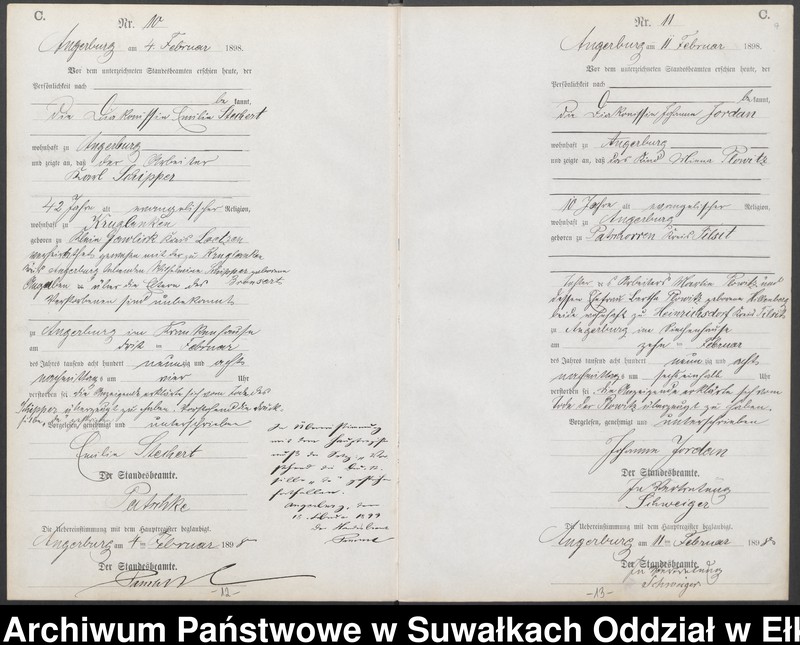 C.
Nr. 10
Angerburg am 4 Februar 1898.
Vor dem unterzeichneten Standesbeamten erschien heute, der
Persönlichkeit nach
be kannt,
die Diakonissin Emilie Stechert
wohnhaft zu Angerburg
und zeigte an, daß der Arbeiter
Karl Schipper
42 Jahre alt evangelischer Religion,
wohnhaft zu Kruglanken
geboren zu Klein Kreis Loetzen
verheirathet gewesen mit der zu Kruglanken
Kreis Angerburg lebenden Wilhelmine Schipper geborene
Angaben über die Eltern des
Verstorbenen sind unbekannt
zu Angerburg im Krankenhause
am Februar
des Jahres tausend acht hundert neunzig und acht
nachmittags um vier Uhr
verstorben sei. Die Anzeigende erklärte sich vom Tode des
Schipper überzeugt zu haben.
Vorgelesen, genehmigt und unterschrieben
Emilie Stechert
Der Standesbeamte.
Patschke
Die Uebereinstimmung mit dem Hauptregister beglaubigt.
Angerburg am 4ten Februar 1898
Der Standesbeamte.
-12-
In Übereinstimmung
mit dem Hauptregister
Angerburg, den
C.
Nr. 11
9
Angerburg am 11 Februar 1898.
Vor dem unterzeichneten Standesbeamten erschien heute, der
Persönlichkeit nach
be kannt,
die Diakonissin Johanna Jordan
wohnhaft zu Angerburg
und zeigte an, daß das Kind Rowitz
10 Jahre alt evangelischer Religion,
wohnhaft zu Angerburg
geboren zu Kreis Tilsit
Tochter des Arbeiters Martin Rowitz und
dessen Ehefrau Bertha Rowitz geborene
beide wohnhaft zu Heinrichsdorf Kreis Tilsit
zu Angerburg im Siechenhause
am zehn ten Februar
des Jahres tausend acht hundert neunzig und acht
nachmittags um Uhr
verstorben sei. Die Anzeigende erklärte sich vom
Tode der Rowitz überzeugt zu haben.
Vorgelesen, genehmigt und unterschrieben
Johanna Jordan
Der Standesbeamte.
In Vertretung
Schweiger
Die Uebereinstimmung mit dem Hauptregister beglaubigt.
Angerburg am 11ten Februar 1898
Der Standesbeamte.
In Vertretung
Schweiger
-13-
Archiwum Państwowe w Suwałkach Oddział w Ełk